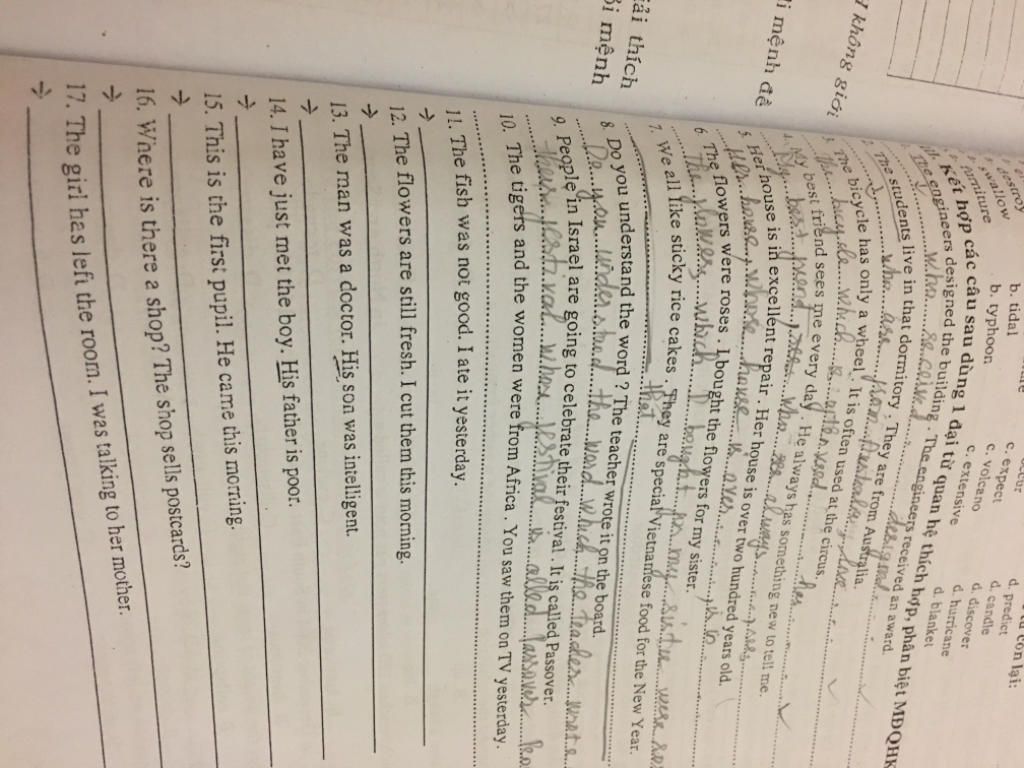 V không giới
ại mệnh đề
iải thích
ối mệnh
destroy
swallow
furniture
b. tidal
b. typhoon
c. expect
c. volcano
c. extensive
d. predict
d. candle
d. discover
d. hurricane
d. blanket
từ còn lại:
Kết hợp các câu sau dùng 1 đại từ quan hệ thích hợp, phân biệt MĐQHK
The engineers designed the building . The engineers received an award.
who received designed
The students live in that dormitory . They are from Australia.
who are from Australia live
3. The bicycle has only a wheel . It is often used at the circus.
The bicycle which is often used has
4. My best friend sees me every day . He always has something new to tell me.
My best friend, who always sees
5. Her house is in excellent repair . Her house is over two hundred years old.
Her house whose house is over is in
6. The flowers were roses . I bought the flowers for my sister.
The flowers which I bought for my sister were ro
7. We all like sticky rice cakes . They are special Vietnamese food for the New Year.
that
8. Do you understand the word ? The teacher wrote it on the board.
Do you understand the word which the teacher wrote
9. People in Israel are going to celebrate their festival . It is called Passover.
their festival whose festival is called Passover
10. The tigers and the women were from Africa . You saw them on TV yesterday.
11. The fish was not good. I ate it yesterday.
→
12. The flowers are still fresh. I cut them this morning.
→
13. The man was a doctor. His son was intelligent.
→
14. I have just met the boy. His father is poor.
→
15. This is the first pupil. He came this morning.
→
16. Where is there a shop? The shop sells postcards?
→
17. The girl has left the room. I was talking to her mother.
→